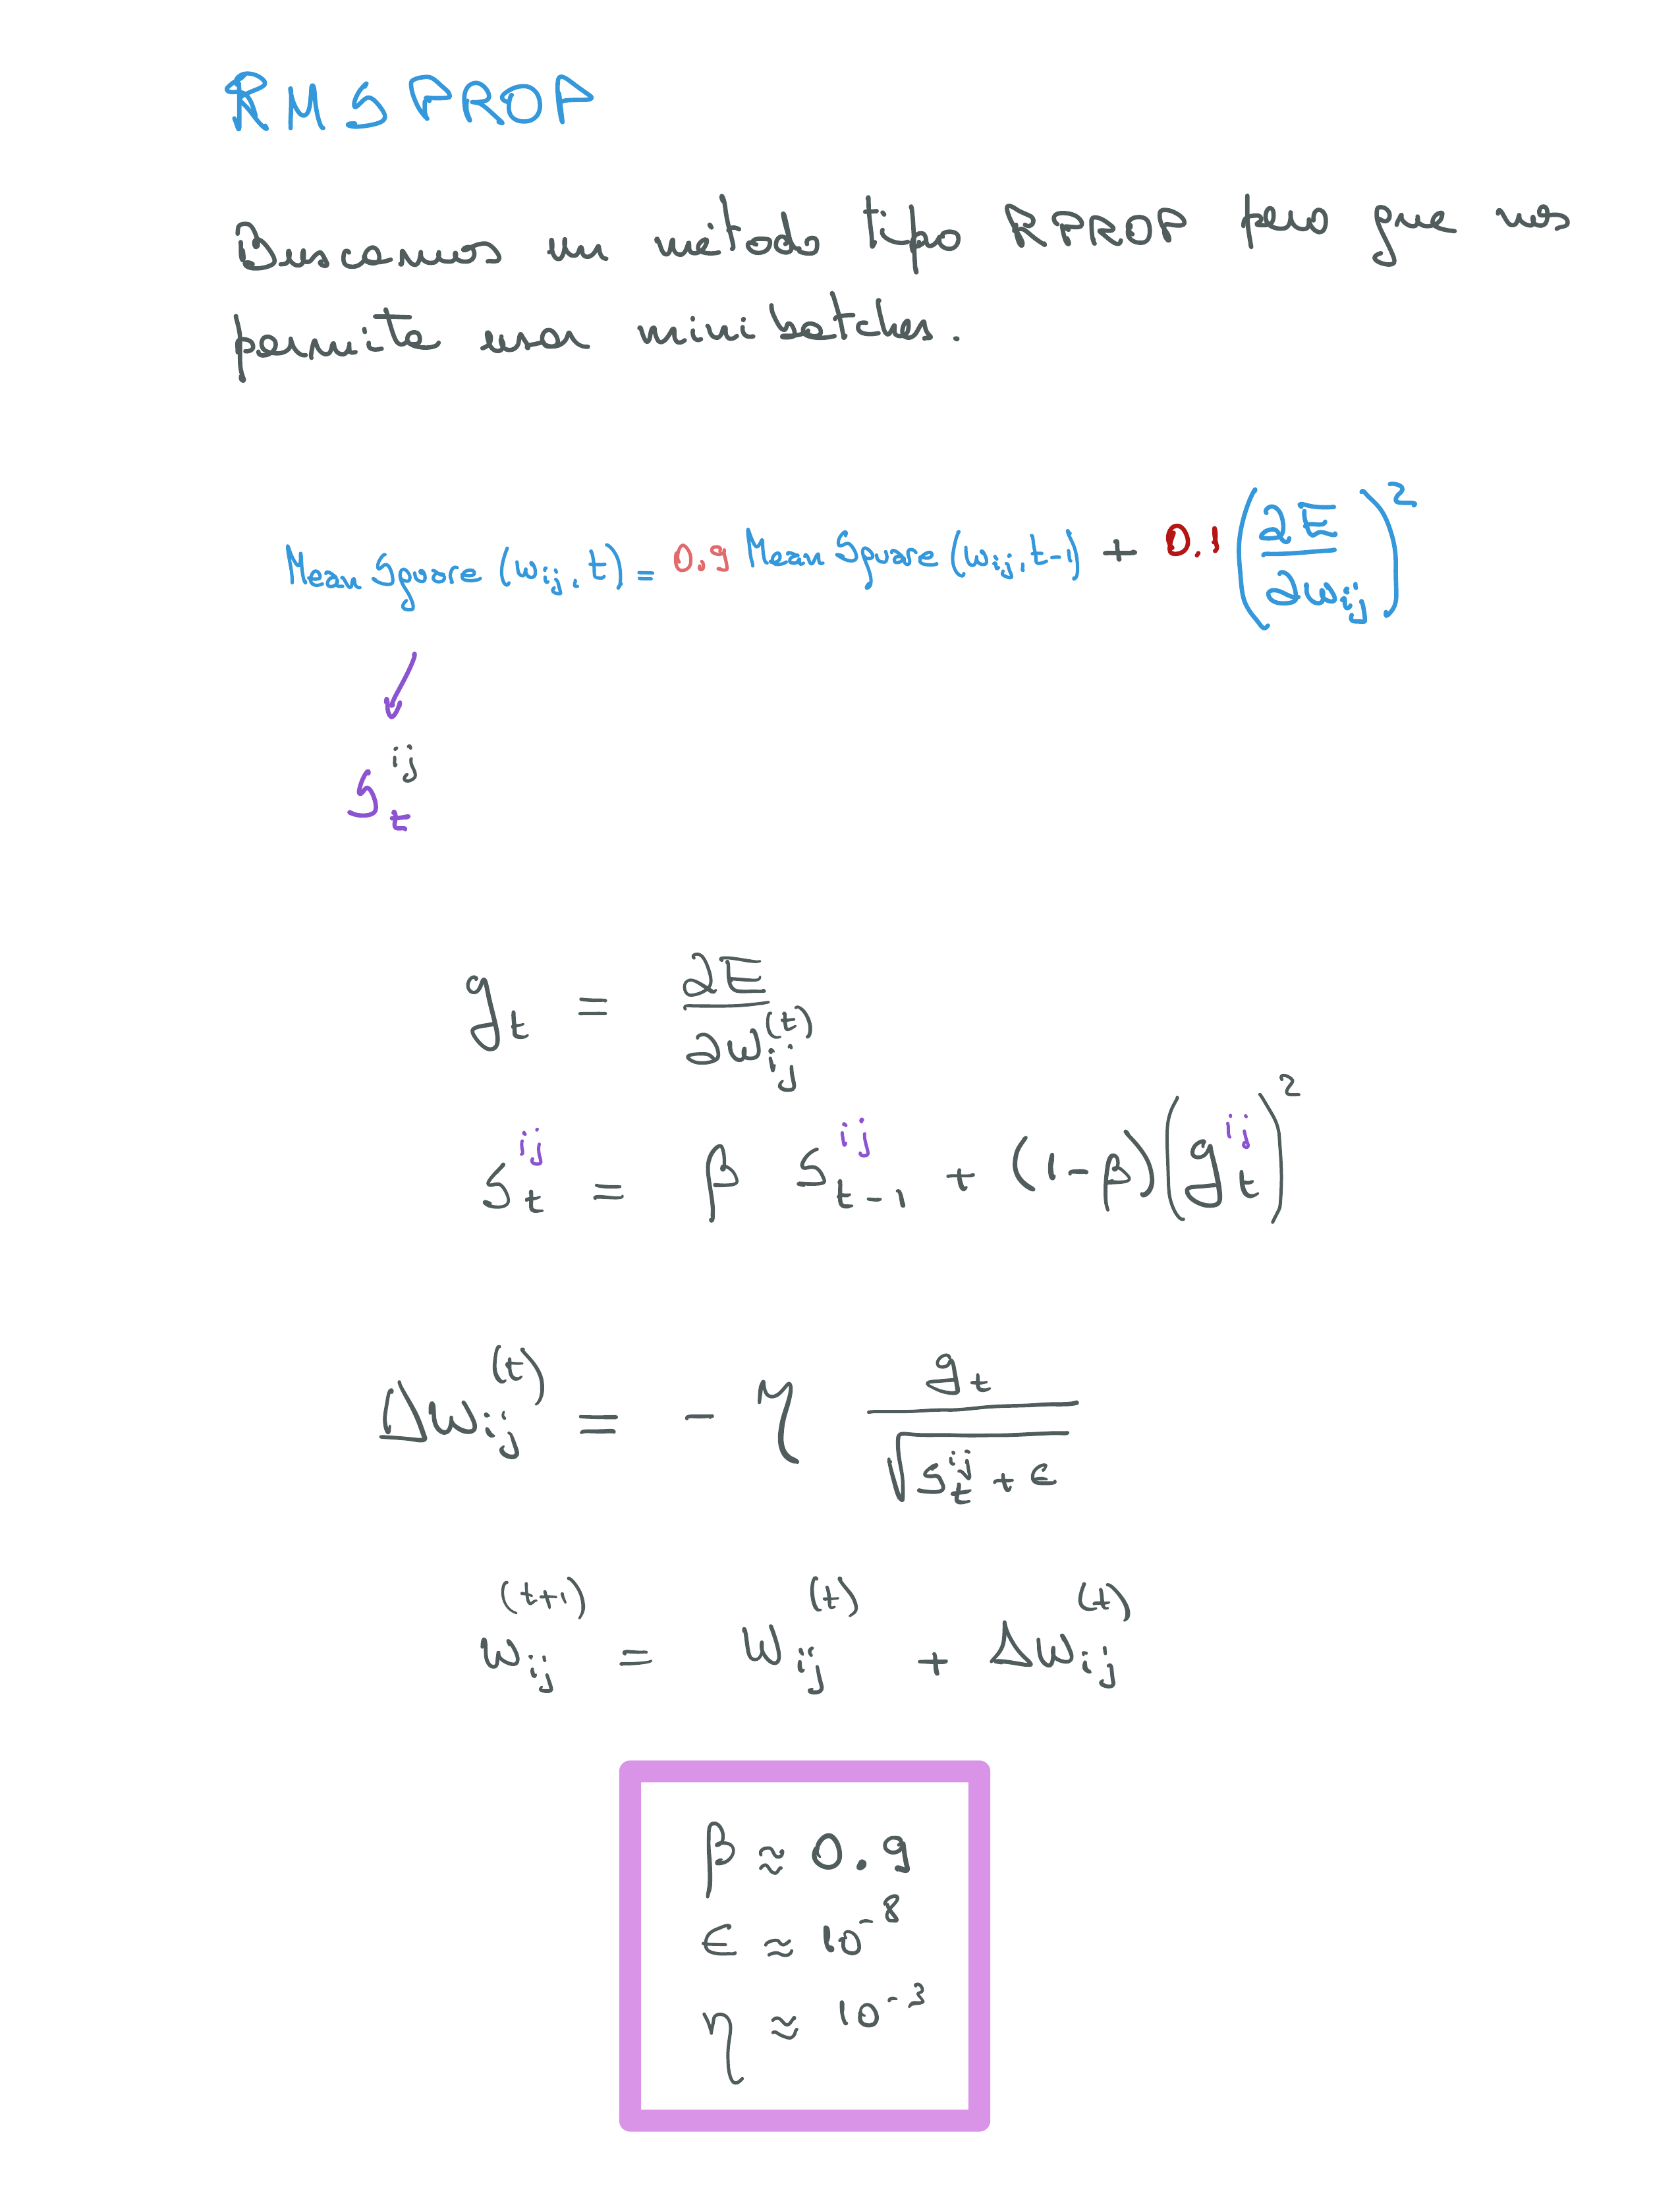 RMSPROP
Buscamos un método tipo RPROP pero que nos
permite usar minibatches.
MeanSquare(w_ij, t) = 0.9 MeanSquare(w_ij, t-1) + 0.1 (∂E/∂w_ij)^2
S_t^ij
g_t = ∂E/∂w_ij^(t)
S_t^ij = β S_{t-1}^ij + (1-β)(g_t^ij)^2
Δw_ij^(t) = - η g_t/√(S_t^ij + ε)
w_ij^(t+1) = w_ij^(t) + Δw_ij^(t)
β ≈ 0.9
ε ≈ 10^-8
η ≈ 10^-3